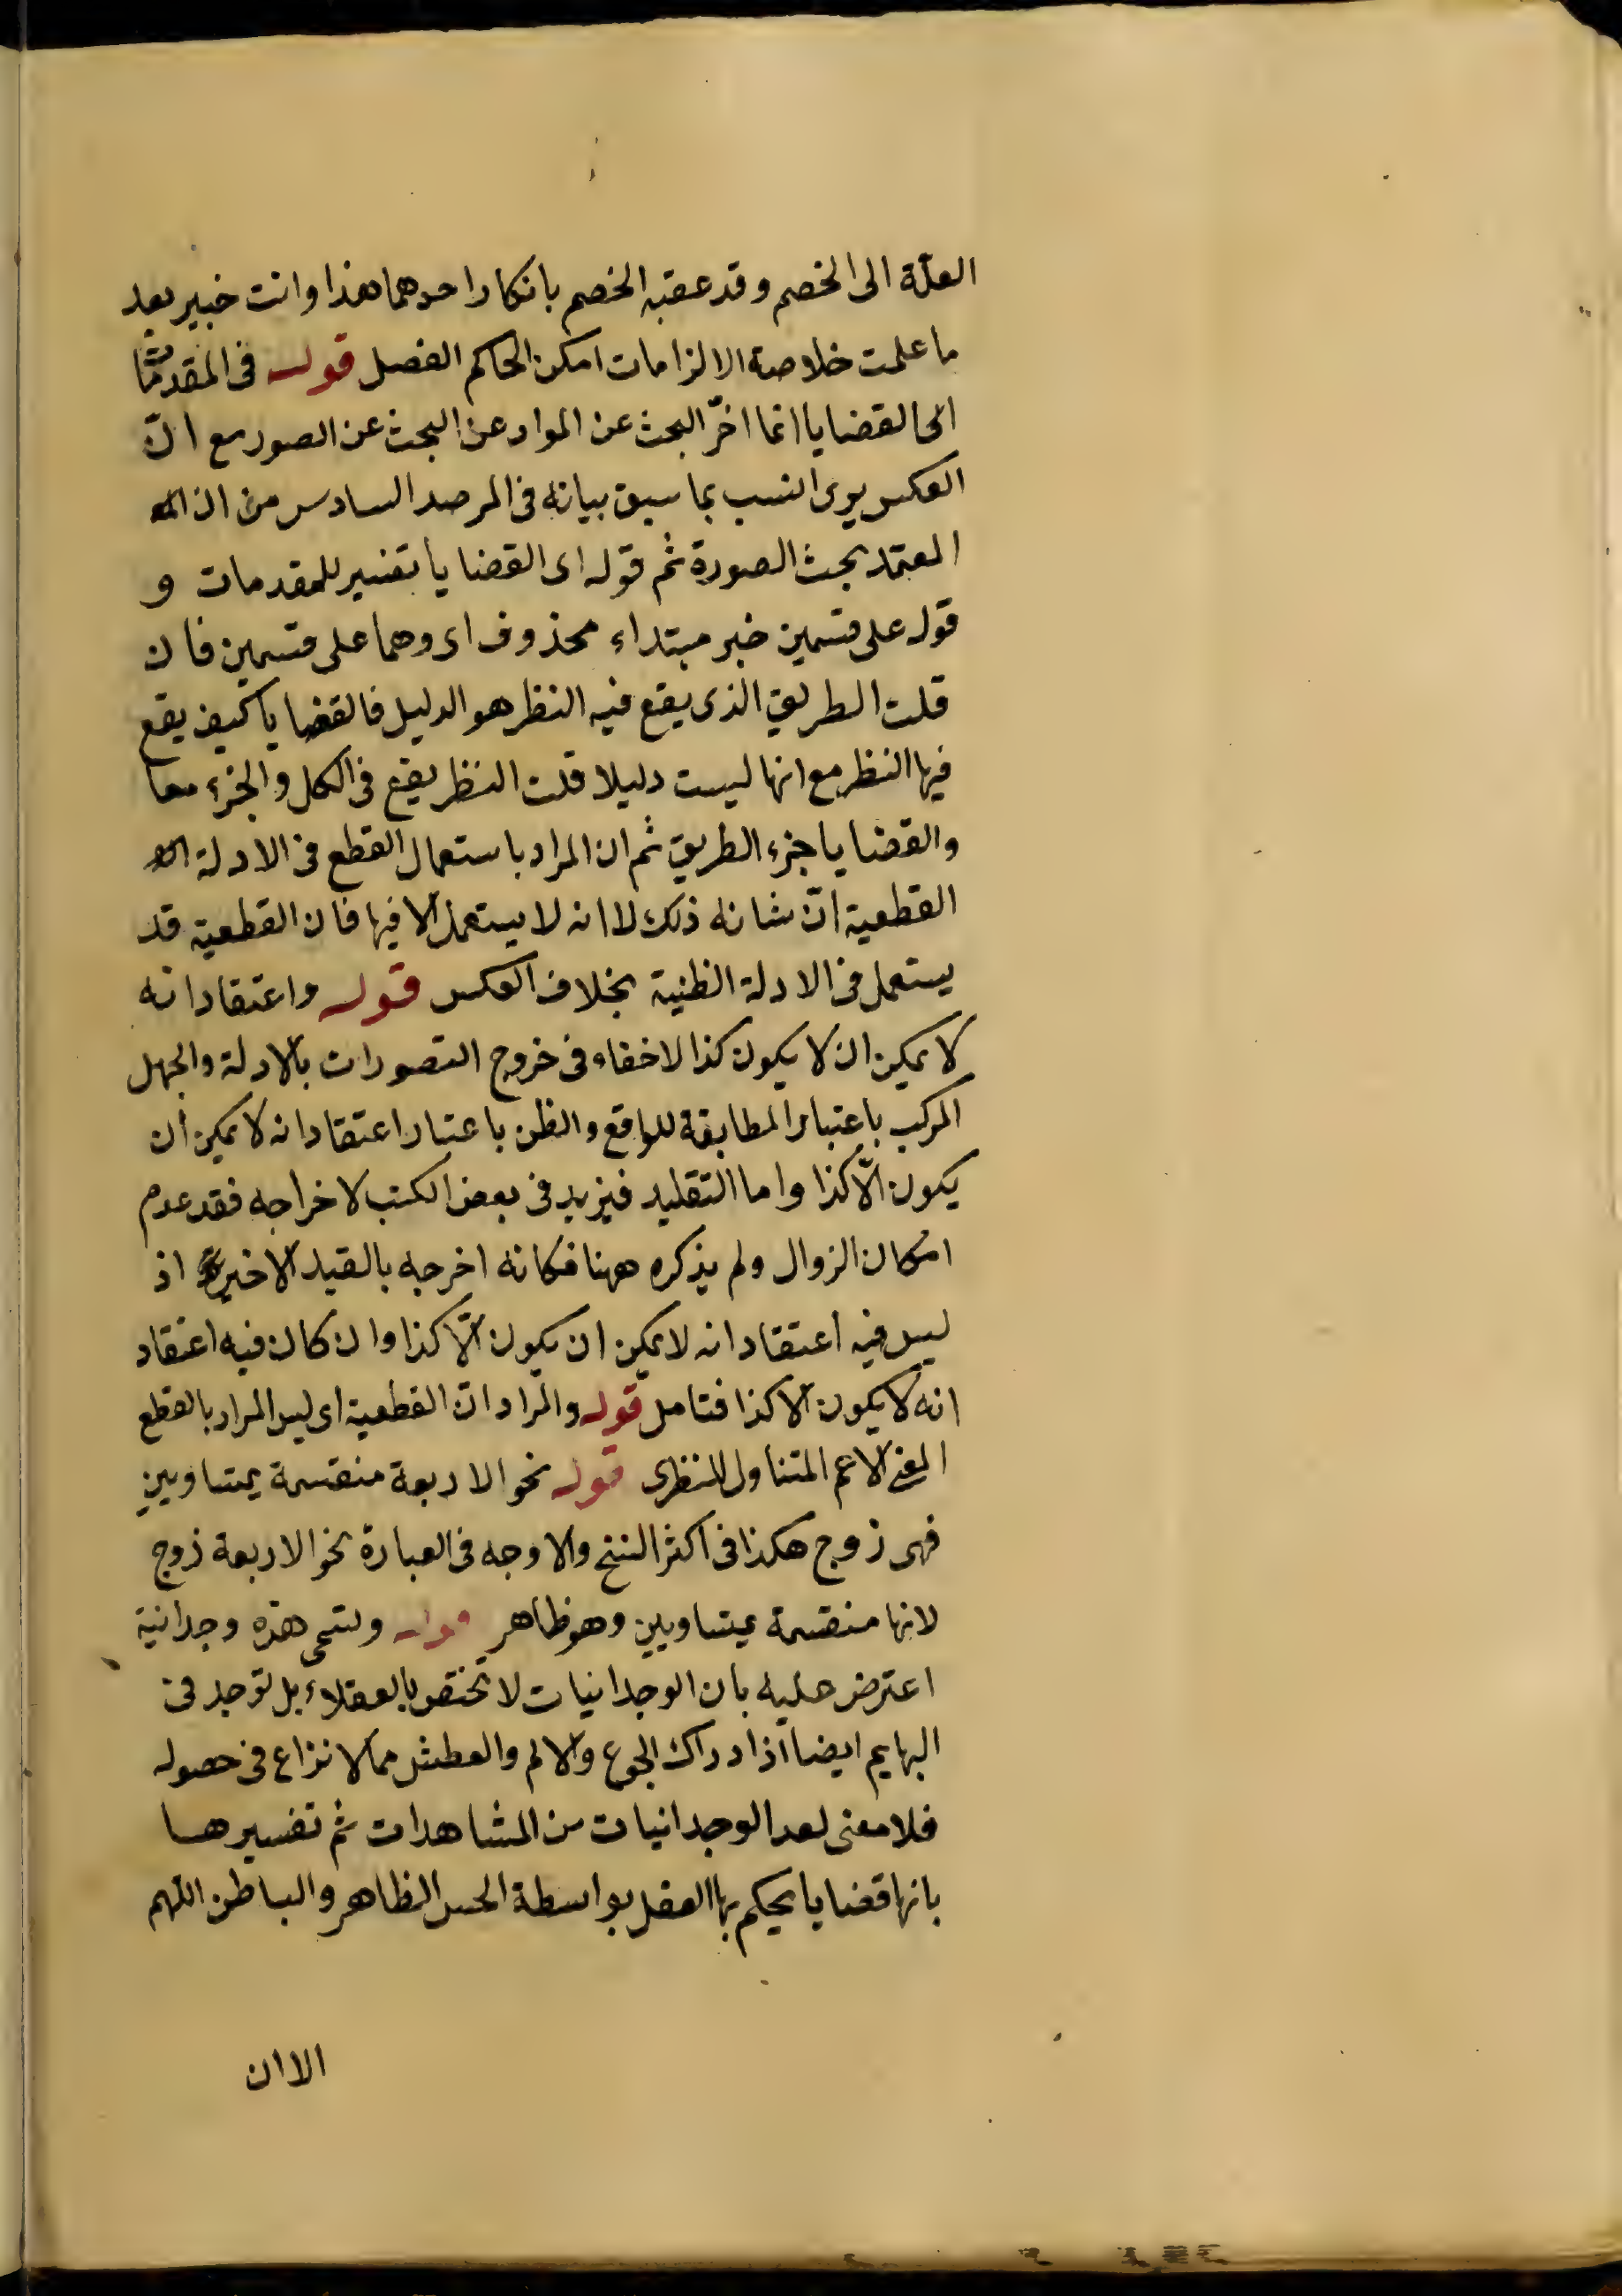 العلة الى الخصم وقد عقبه الخصم بانكار احدهما هذا وانت خبير بعد
ما علمت خلاصة الالزامات امكن الحاكم الفصل قوله فى المقدمات
اى القضايا انما اخّر البحث عن المواد عن البحث عن الصور مع انّ
العكس يرى انسب بما سبق بيانه فى المرصد السادس من ان
المعتمد بحث الصورة ثم قوله اى القضايا تفسير للمقدمات و
قوله على قسمين خبر مبتداء محذوف اى وهما على قسمين فان
قلت الطريق الذى يقع فيه النظر هو الدليل فالقضايا كيف يقع
فيها النظر مع انها ليست دليلا قلت النظر يقع فى الكل والجزء معا
والقضايا جزء الطريق ثم ان المراد باستعمال القطع فى الادلة
القطعية انّ شانه ذلك لا انه لا يستعمل الا فيها فان القطعية قد
يستعمل فى الادلة الظنية بخلاف العكس قوله واعتقاد انه
لا يمكن ان لا يكون كذا لاخفاء فى خروج التصورات بالادلة والجهل
المركب باعتبار المطابقة للواقع والظن باعتبار اعتقاد انه لا يمكن ان
يكون الّا كذا واما التقليد فيزيد فى بعض الكتب لاخراجه فقد عدم
امكان الزوال ولم يذكره ههنا فكانه اخرجه بالقيد الاخير اذ
ليس فيه اعتقاد انه لا يمكن ان يكون الّا كذا وان كان فيه اعتقاد
انه لا يكون الا كذا فتامل قوله والمراد انّ القطعية اى ليس المراد بالقطع
المعنى الاعم المتناول للنظرى قوله نحو الاربعة منقسمة بمتساويين
فهى زوج هكذا فى اكثر النسخ والاوجه فى العبارة نحو الاربعة زوج
لانها منقسمة بمتساويين وهو ظاهر قوله وتسمى هذه وجدانية
اعترض عليه بان الوجدانيات لا تختص بالعقلاء بل توجد فى
البهايم ايضا اذ ادراك الجوع والالم والعطش مما لا نزاع فى حصوله
فلا معنى لعد الوجدانيات من المشاهدات ثم تفسيرها
بانها قضايا يحكم بها العقل بواسطة الحس الظاهر والباطن اللهم
الا ان